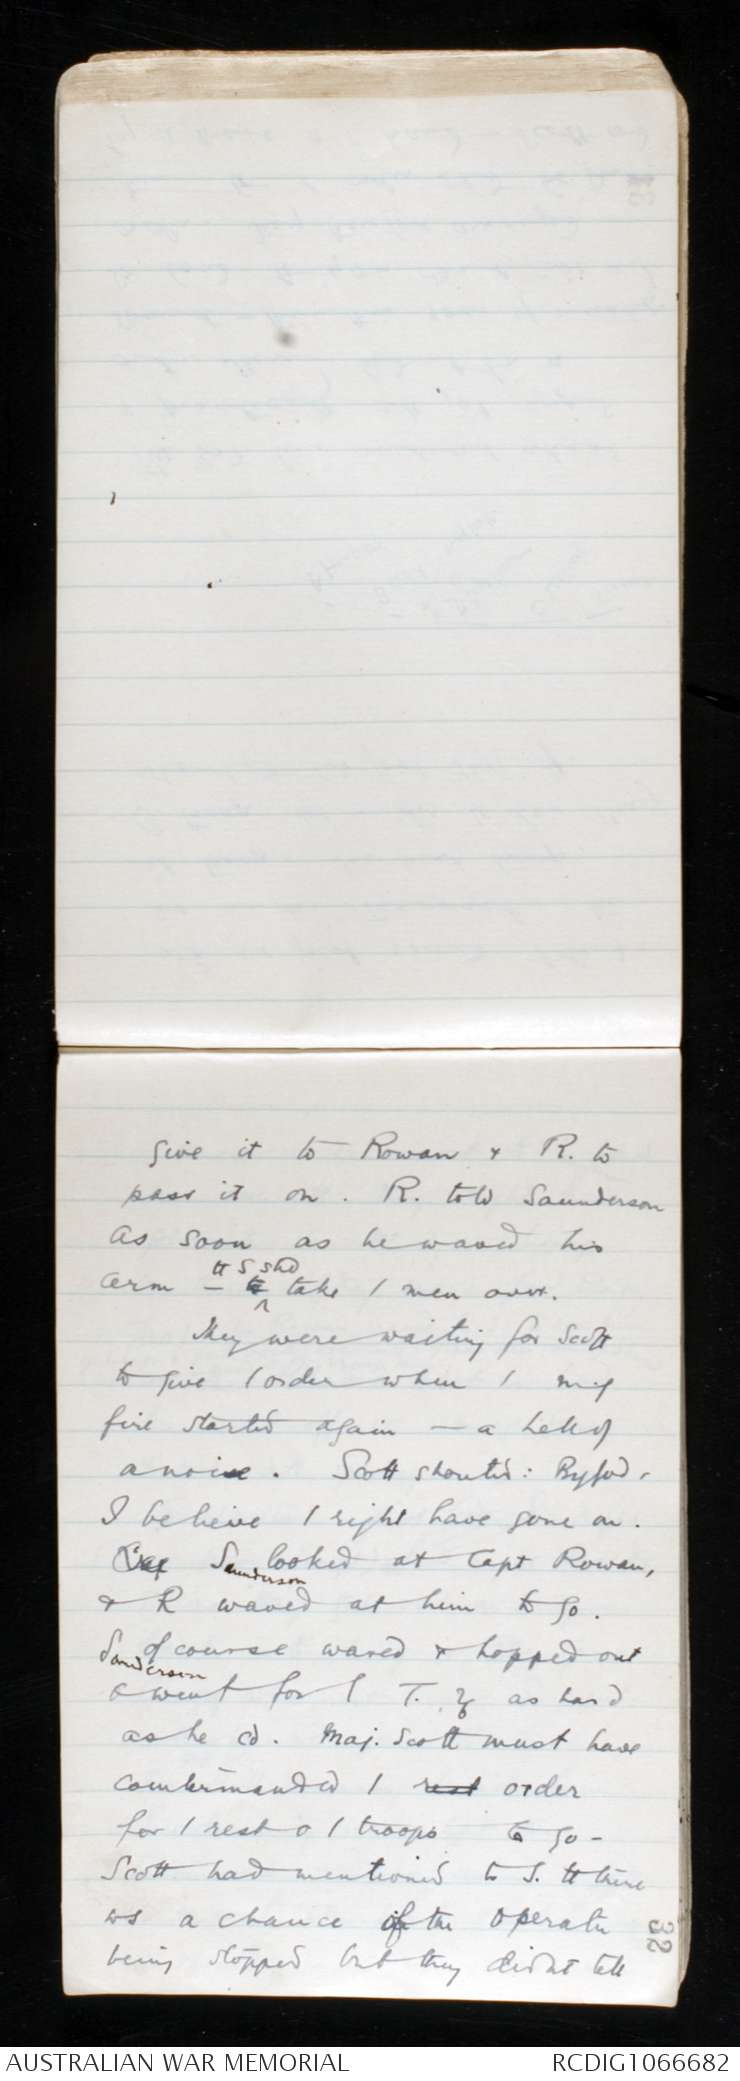 give it to Rowan & R. to
pass it on. R. told Saunderson
As soon as he waved his
tt S shd
arm – to take / men over.
They were waiting for Scott
to give / order when / m.g
fire started again – a hell of
a noise. Scott shouted: By God,
I believe / right have gone on.
S looked at Capt Rowan,
aunderson
& R waved at him to go.
S of course waved & hopped out
aunderson
& went for / T. as hard
as he cd. Maj. Scott must have
countermanded / rest order
for / rest o / troops to go –
Scott had mentioned to S. tt there
ws a chance of the operatn
being stopped but they didnt tell
32
AUSTRALIAN WAR MEMORIAL
RCDIG1066682